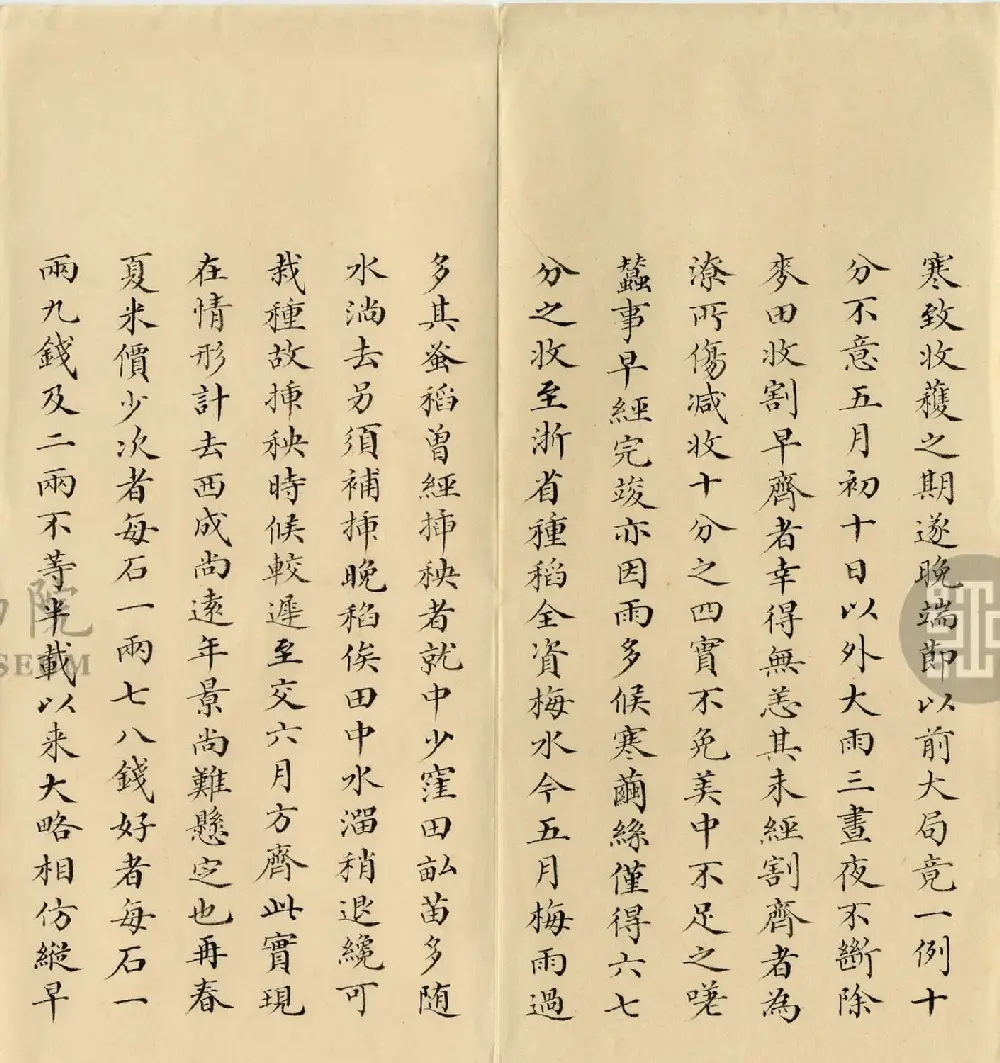 寒致收穫之期遂晚端節以前大局竟一例十
分不意五月初十日以外大雨三晝夜不斷除
麥田收割早齊者幸得無恙其未經割齊者為
潦所傷减收十分之四實不免美中不足之嘆
蠶事早經完竣亦因雨多候寒繭絲僅得六七
分之收至浙省種稻全資梅水今五月梅雨過
多其蚤稻曾經揷秧者就中少窪田畝苗多随
水淌去另須補揷晚稻俟田中水溜稍退纔可
栽種故揷秧時候較遲至交六月方齊此實現
在情形計去西成尚遠年景尚難懸定也再春
夏米價少次者每石一兩七八錢好者每石一
兩九錢及二兩不等半載以来大略相仿縱早
院
SEUM